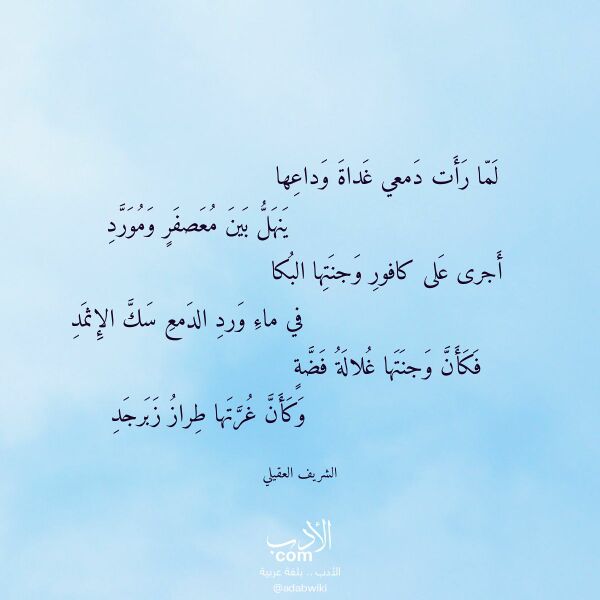 لَمّا رَأَت دَمعي غَداةَ وَداعِها
يَنهَلُّ بَينَ مُعَصفَرٍ وَمُوَرَّدِ
أَجرى عَلى كافورِ وَجنَتِها البُكا
في ماءِ وَردِ الدَمعِ سَكَّ الإِثمَدِ
فَكَأَنَّ وَجنَتَها غُلالَةُ فَضَّةٍ
وَكَأَنَّ غُرَّتَها طِرازُ زَبَرجَدِ
الشريف العقيلي
الأدب
com
الأدب .. بلغة عربية
@adabwiki